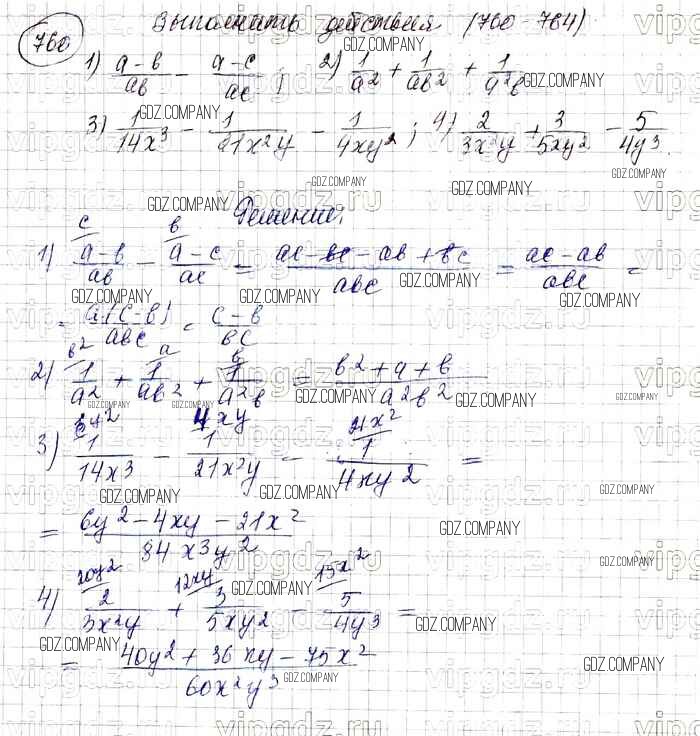 760 Выполнить действия (760-764)
1) (a-b)/ab - (a-c)/ac ; 2) 1/a² + 1/ab² + 1/a²b
3) 1/14x³ - 1/21x²y - 1/4xy² ; 4) 2/3x²y + 3/5xy² - 5/4y³
Решение:
1) (a-b)/ab - (a-c)/ac = (ac-bc-ab+bc)/abc = (ac-ab)/abc =
= a(c-b)/abc = (c-b)/bc
2) 1/a² + 1/ab² + 1/a²b = (b²+a+b)/a²b²
3) 1/14x³ - 1/21x²y - 1/4xy² =
= (6y²-4xy-21x²)/84x³y²
4) 2/3x²y + 3/5xy² - 5/4y³ =
= (40y²+36xy-75x²)/60x²y³
GDZ.COMPANY
vipgdz.ru